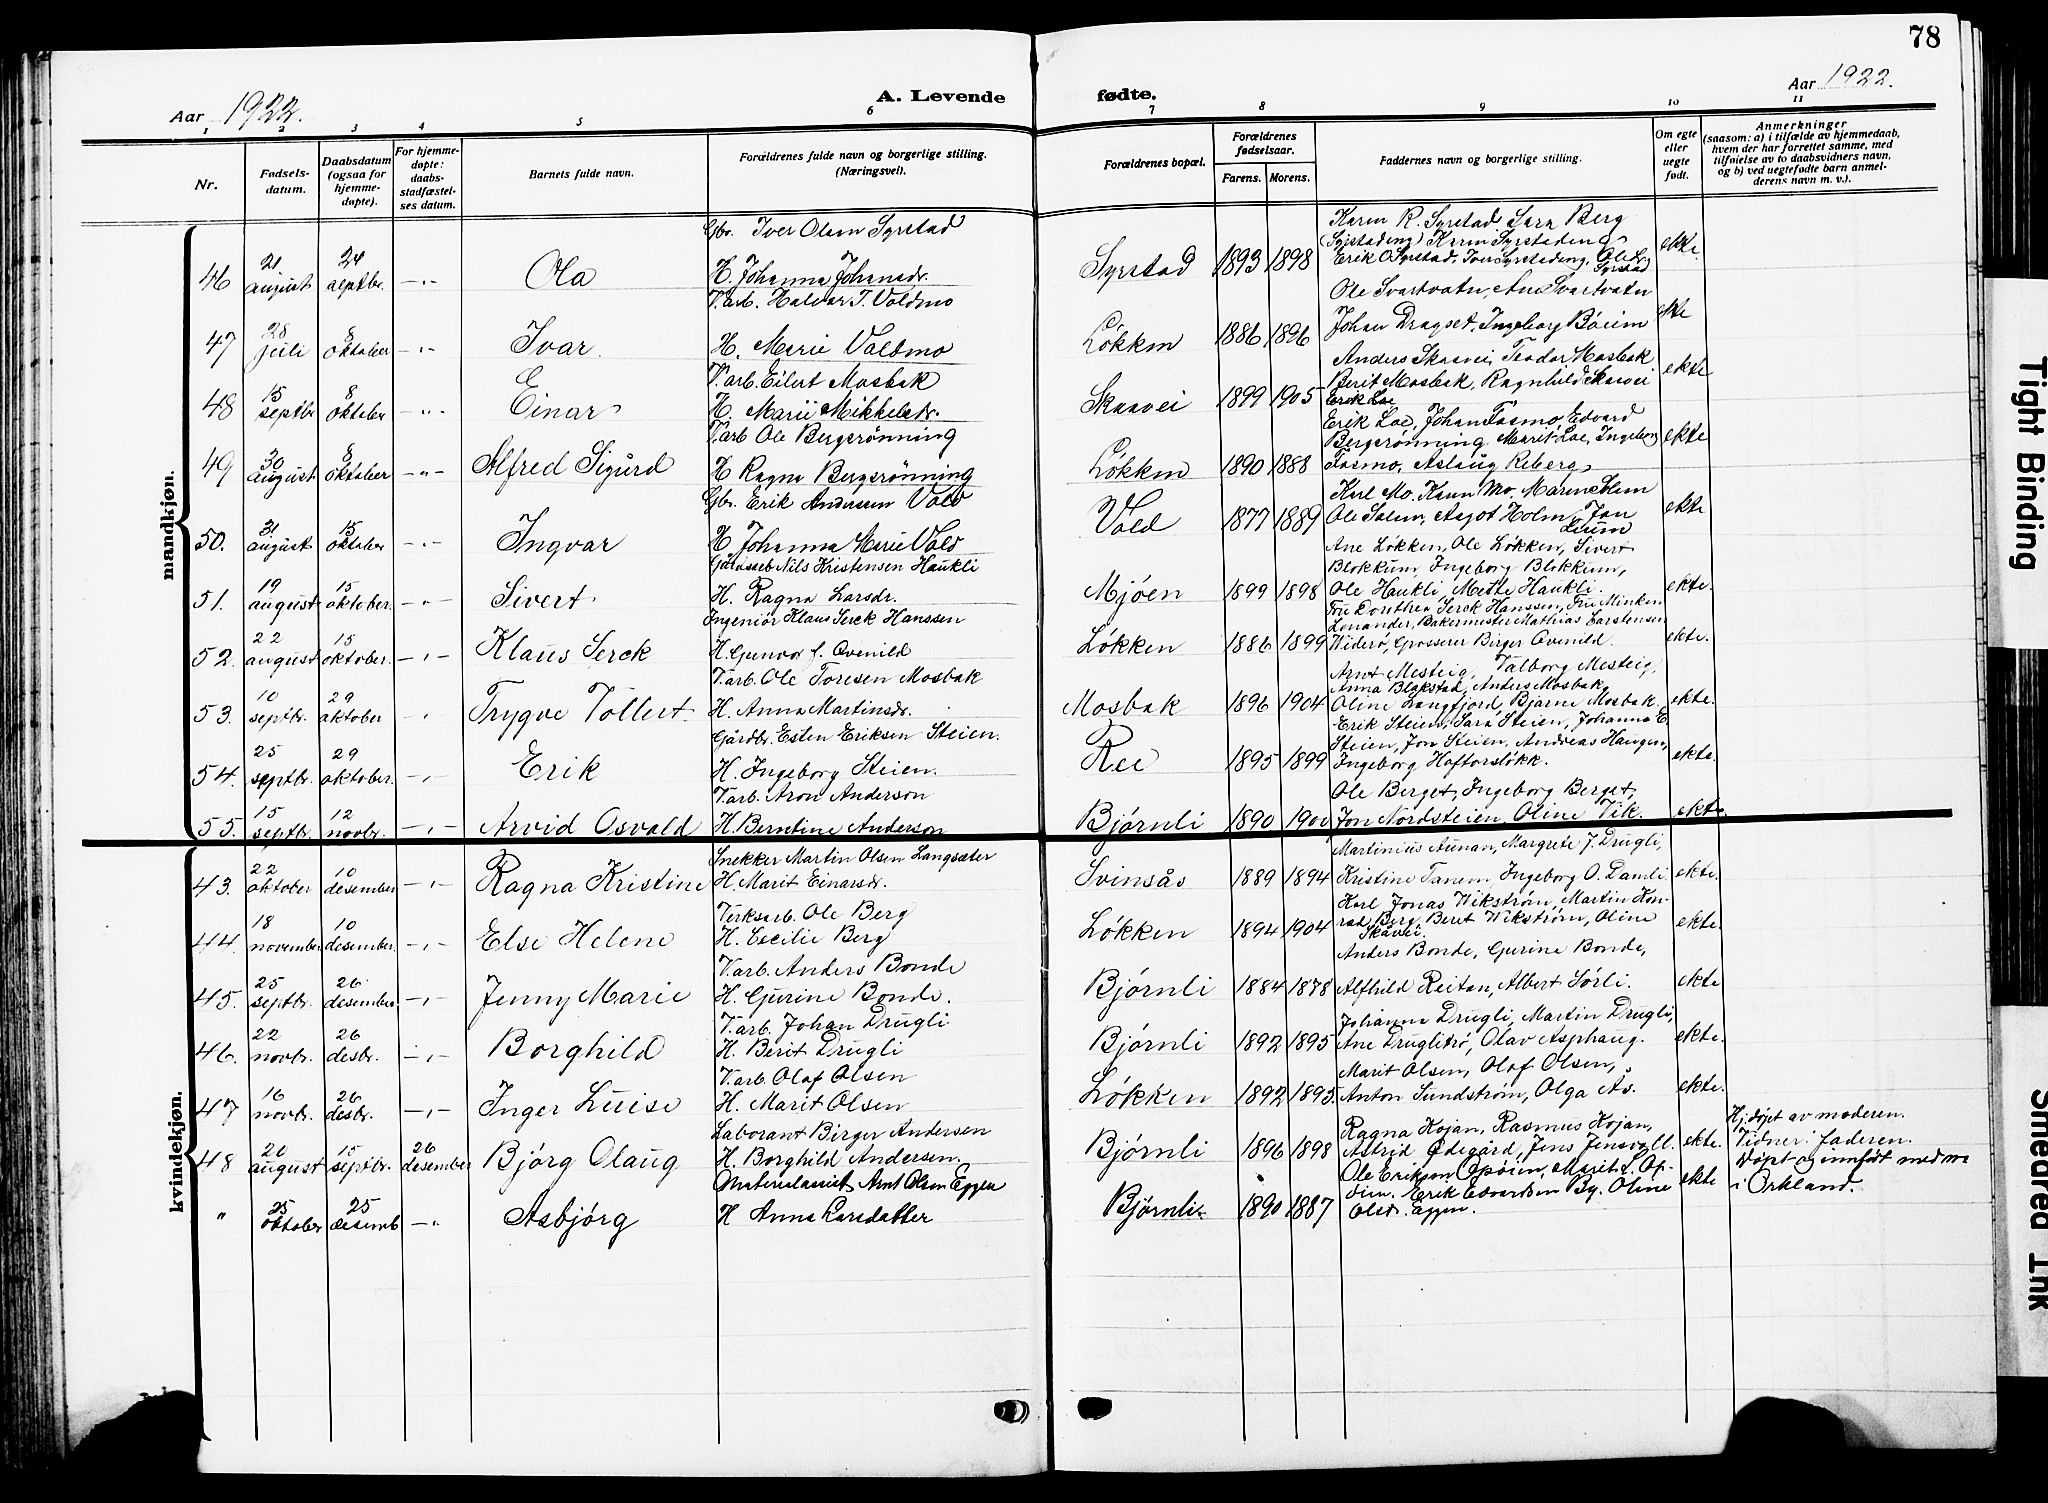 78
Aar 1922.
A. Levende fødte.
Aar 1922.
1 2 3 4 5 6 7 8 9 10 11
Nr.
Fødsels-
datum.
Daabsdatum
(ogsaa for
hjemme-
døpte).
For hjemme-
døpte:
daabs-
stadfæstel-
ses datum.
Barnets fulde navn.
Forældrenes fulde navn og borgerlige stilling.
(Næringsvei).
Forældrenes bopæl.
Forældrenes
fødselsaar.
Farens. Morens.
Faddernes navn og borgerlige stilling.
Om egte
eller
uegte
født.
Anmerkninger
(saasom: a) i tilfælde av hjemmedaab,
hvem der har forrettet samme, med
tilføielse av to daabsvidners navn,
og b) ved uegtefødte barn anmel-
derens navn m. v.).
mandkjøn.
Gbr. Iver Olsen Syrstad
Karen R. Syrstad, Sara Berg
(Syrstadeng) Karen Syrstadeng
46 21 august 24 septbr. —"— Ola H. Johanna Johansdr. Syrstad 1893 1898 Erik O Syrstad, Syrstadeng, Ole Syrstad ekte
V.arb. Halvar T. Voldmo
Ole Svartvatn, Ane Svartvatn
47 28 juli 8 oktober —"— Ivar H. Marie Voldmo Løkken 1886 1896 Johan Dragset, Ingeborg Bøium ekte
V.arb. Eilert Mosbak
Anders Skaavei, Teodor Mosbak
Berit Mosbak, Ragnhild Skaavei
48 15 septbr 8 oktober —"— Einar H. Marie Mikkelsdr. Skaavei 1899 1905 Erik Loe ekte
V.arb Ole Bergsrønning
Erik Loe, Johan Fosmo, Edvard
Bergsrønning, Marit Loe, Ingeborg
49 30 august 8 oktober —"— Alfred Sigurd H Ragna Bergsrønning Løkken 1890 1888 Fosmo, Aslaug Reberg ekte
Gbr. Erik Andersen Vold
Karl Mo. Karen Mo. Maren Solem
50. 31 august 15 oktober —"— Ingvar H Johanna Marie Vold Vold 1877 1889 Ole Solem, Aagot Holm, Jon ekte
Gårdsseb Nils Kristensen Haukli
Ane Løkken, Ole Løkken, Sivert
Blokkum, Ingeborg Blokkum,
51. 19 august 15 oktober. —"— Sivert H. Ragna Larsdr. Mjøen 1899 1898 Ole Haukli, Mette Haukli. ekte.
Ingeniør Klaus Serck Hanssen
Fru Dorothea Serck Hanssen, Fru Minken
Lenander, Bakermester Mathias Carstensen
52. 22 august 15 oktober. —"— Klaus Serck H. Gunvor f. Qvenild Løkken 1886 1899 Widerø, Grosserer Birger Qvenild. ekte.
V.arb. Ole Toresen Mosbak
Arnt Mesteig, Valborg Mesteig,
Anna Blokstad, Anders Mosbak,
53. 10 septbr. 29 oktober — Trygve Tollert H. Anna Martinsdr. Mosbak 1896 1904 Oline Langfjord, Bjarne Mosbak. ekte.
Gårdbr. Esten Eriksen Steien.
Erik Steien, Sara Steien, Johanna E.
Steien, Jon Steien, Andreas Haugen,
54. 25 septbr. 29 oktober. —"— Erik H. Ingeborg Steien. Ree 1895 1899 Ingeborg Hoftorsløkk. ekte.
V.arb. Aron Anderson
Ole Berget, Ingeborg Berget,
55. 15 septbr. 12 novbr. —"— Arvid Osvald H. Berntine Anderson Bjørnli 1890 1900 Jon Nordsteien, Oline Vik. ekte.
kvindekjøn.
Snekker Martin Olsen Langsæter
Martinius Aunan, Margrete J. Drugli,
43. 22 oktober 10 desember —"— Ragna Kristine H. Marit Einarsdr. Svinsås 1889 1894 Kristine Tanem, Ingeborg O. Damli ekte.
Verksarb. Ole Berg
Karl Jonas Wikstrøm, Martin Kon-
44. 18 november 10 desember. —"— Else Helene H. Cecilie Berg Løkken 1894 1904 rad Berg, Beret Wikstrøm, Oline ekte.
V.arb. Anders Bonde
Anders Bonde, Gurine Bonde,
45. 25 septbr. 26 desember —"— Jenny Marie H. Gurine Bonde. Bjørnli 1884 1878 Alfhild Reitan, Albert Sørli. ekte
V.arb. Johan Drugli
Johanna Drugli, Martin Drugli,
46. 22 novbr. 26 desbr. —"— Borghild H. Berit Drugli Bjørnli 1892 1895 Ane Druglitrø, Olav Asphaug. ekte.
V.arb. Olaf Olsen
Marit Olsen, Olaf Olsen,
47 16 novbr. 26 desbr. —"— Inger Luise H. Marit Olsen Løkken 1892 1895. Anton Sundstrøm, Olga As. ekte.
Laborant Birger Andersen
Ragna Kojan, Rasmus Kojan,
Hj. døpt av moderen.
48 20 august 15 septbr. 26 desember Bjørg Olaug H. Borghild Andersen. Bjørnli 1896 1898 Astrid Ødegård, Jens Jensvoll. ekte. Vidner: faderen.
Materialassist. Arnt Olsen Eggen
Ole Eriksen Opøien, Marit L. Op-
Døpt og innført med no
" 25 oktober 25 desemb —"— Asbjørg H Anna Larsdatter Bjørnli 1890 1887 øien. Erik Edvardsen By. Oline Olsdr. Eggen. ekte i Orkland.
Tight Binding
Smeared Ink